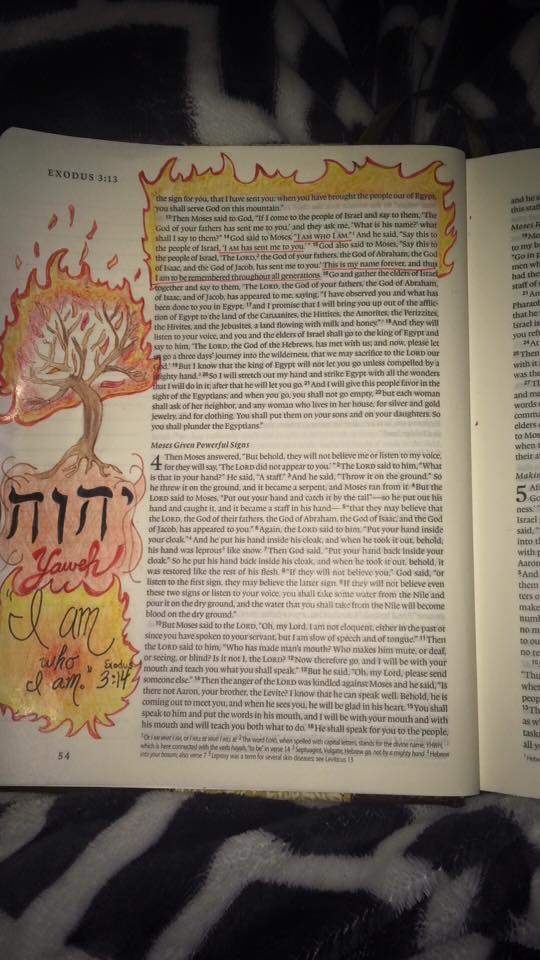 EXODUS 3:13
the sign for you, that I have sent you: when you have brought the people out of Egypt,
you shall serve God on this mountain."
13Then Moses said to God, "If I come to the people of Israel and say to them, 'The
God of your fathers has sent me to you,' and they ask me, 'What is his name?' what
shall I say to them?" 14God said to Moses, "I AM WHO I AM."1 And he said, "Say this to
the people of Israel, 'I AM has sent me to you.'" 15God also said to Moses, "Say this to
the people of Israel, 'The LORD,2 the God of your fathers, the God of Abraham, the God
of Isaac, and the God of Jacob, has sent me to you.' This is my name forever, and thus
I am to be remembered throughout all generations. 16Go and gather the elders of Israel
together and say to them, 'The LORD, the God of your fathers, the God of Abraham,
of Isaac, and of Jacob, has appeared to me, saying, "I have observed you and what has
been done to you in Egypt, 17and I promise that I will bring you up out of the afflic-
tion of Egypt to the land of the Canaanites, the Hittites, the Amorites, the Perizzites,
the Hivites, and the Jebusites, a land flowing with milk and honey."' 18And they will
listen to your voice, and you and the elders of Israel shall go to the king of Egypt and
say to him, 'The LORD, the God of the Hebrews, has met with us; and now, please let
us go a three days' journey into the wilderness, that we may sacrifice to the LORD our
God.' 19But I know that the king of Egypt will not let you go unless compelled by a
mighty hand.3 20So I will stretch out my hand and strike Egypt with all the wonders
that I will do in it; after that he will let you go. 21And I will give this people favor in the
sight of the Egyptians; and when you go, you shall not go empty, 22but each woman
shall ask of her neighbor, and any woman who lives in her house, for silver and gold
jewelry, and for clothing. You shall put them on your sons and on your daughters. So
you shall plunder the Egyptians."
Moses Given Powerful Signs
4 Then Moses answered, "But behold, they will not believe me or listen to my voice,
for they will say, 'The LORD did not appear to you.'" 2The LORD said to him, "What
is that in your hand?" He said, "A staff." 3And he said, "Throw it on the ground." So
he threw it on the ground, and it became a serpent, and Moses ran from it. 4But the
LORD said to Moses, "Put out your hand and catch it by the tail"—so he put out his
hand and caught it, and it became a staff in his hand— 5"that they may believe that
the LORD, the God of their fathers, the God of Abraham, the God of Isaac, and the God
of Jacob, has appeared to you." 6Again, the LORD said to him, "Put your hand inside
your cloak."4 And he put his hand inside his cloak, and when he took it out, behold,
his hand was leprous5 like snow. 7Then God said, "Put your hand back inside your
cloak." So he put his hand back inside his cloak, and when he took it out, behold, it
was restored like the rest of his flesh. 8"If they will not believe you," God said, "or
listen to the first sign, they may believe the latter sign. 9If they will not believe even
these two signs or listen to your voice, you shall take some water from the Nile and
pour it on the dry ground, and the water that you shall take from the Nile will become
blood on the dry ground."
10But Moses said to the LORD, "Oh, my Lord, I am not eloquent, either in the past or
since you have spoken to your servant, but I am slow of speech and of tongue." 11Then
the LORD said to him, "Who has made man's mouth? Who makes him mute, or deaf,
or seeing, or blind? Is it not I, the LORD? 12Now therefore go, and I will be with your
mouth and teach you what you shall speak." 13But he said, "Oh, my Lord, please send
someone else." 14Then the anger of the LORD was kindled against Moses and he said, "Is
there not Aaron, your brother, the Levite? I know that he can speak well. Behold, he is
coming out to meet you, and when he sees you, he will be glad in his heart. 15You shall
speak to him and put the words in his mouth, and I will be with your mouth and with
his mouth and will teach you both what to do. 16He shall speak for you to the people,
1Or I AM WHAT I AM, or I WILL BE WHAT I WILL BE 2The word LORD, when spelled with capital letters, stands for the divine name, YHWH,
which is here connected with the verb hayah, "to be" in verse 14 3Septuagint, Vulgate; Hebrew go, not by a mighty hand 4Hebrew
into your bosom; also verse 7 5Leprosy was a term for several skin diseases; see Leviticus 13
יהוה
Yaweh
"I am
who
I am."
Exodus
3:14
54